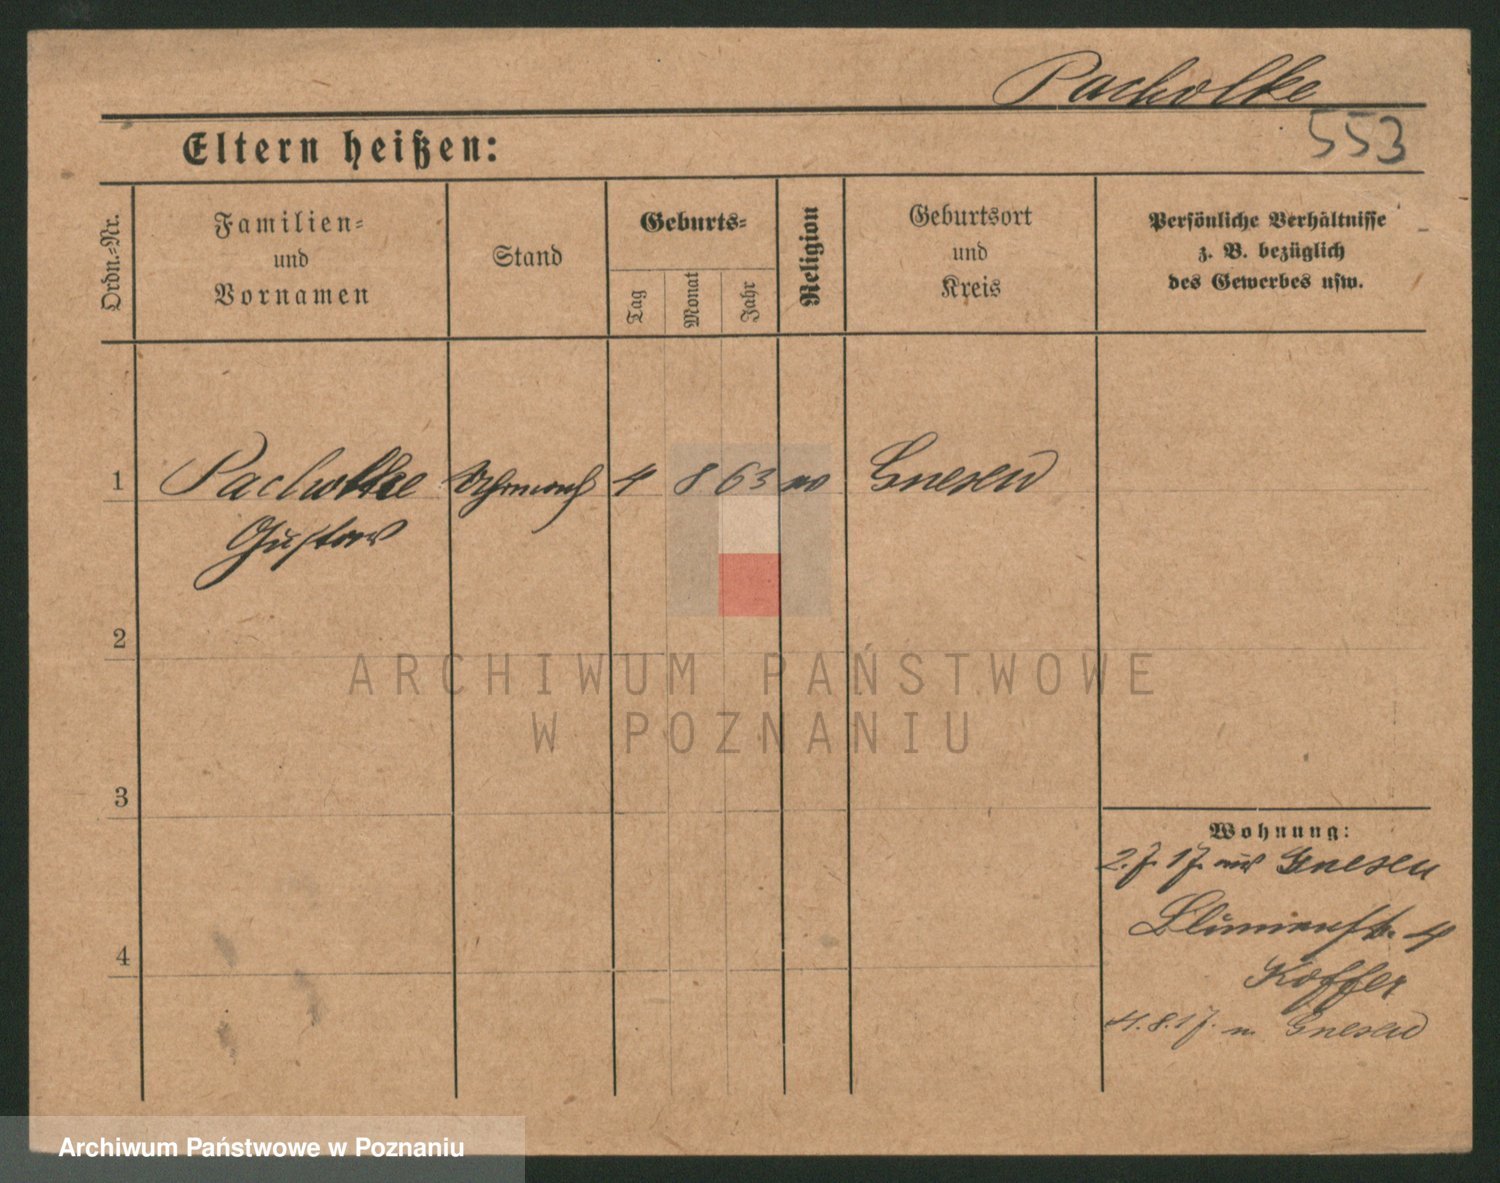 Pacholke
553
Eltern heißen:
Ordn.=Nr.
Familien=
und
Vornamen
Stand
Geburts=
Tag
Monat
Jahr
Religion
Geburtsort
und
Kreis
Persönliche Verhältnisse
z. B. bezüglich
des Gewerbes usw.
1 Pacholke 4 8 63 Gnesen
Gustav
2
ARCHIWUM PAŃSTWOWE
W POZNANIU
3
Wohnung:
2.7.17. aus Gnesen
Blumenstr. 4
Koffer
4
4.8.17. n. Gnesen
Archiwum Państwowe w Poznaniu